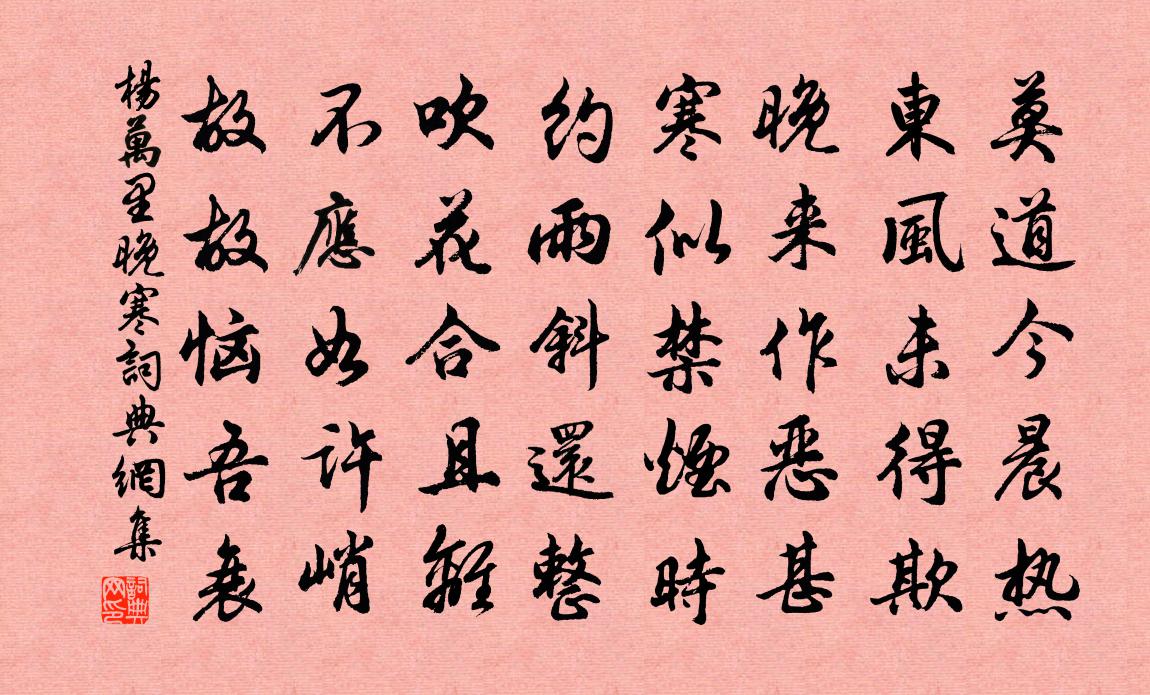 莫道今晨热
東風未得欺
晚来作恶甚
寒似禁煙時
约雨斜還整
吹花合且離
不應如许峭
故故恼吾衰
楊萬里晚寒詞典網集
詞典网印